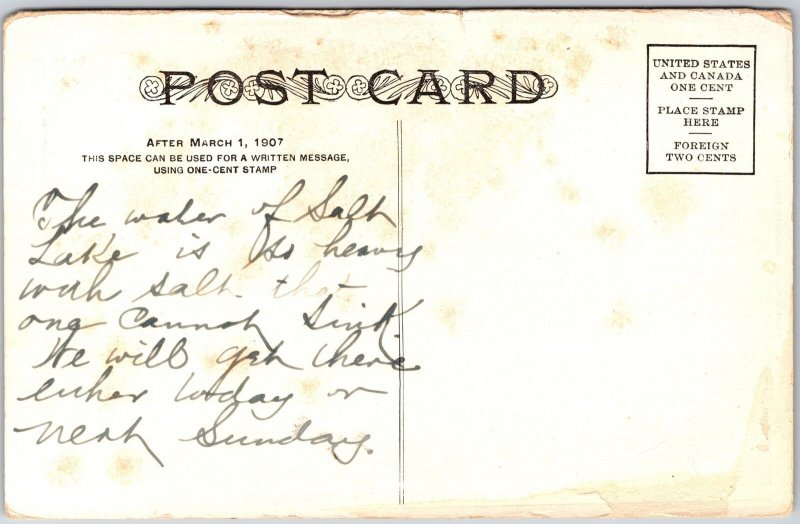 POST CARD
UNITED STATES
AND CANADA
ONE CENT
PLACE STAMP
HERE
FOREIGN
TWO CENTS
AFTER MARCH 1, 1907
THIS SPACE CAN BE USED FOR A WRITTEN MESSAGE,
USING ONE-CENT STAMP
The water of Salt
Lake is so heavy
with salt that
one cannot sink.
We will get there
either today or
next Sunday.